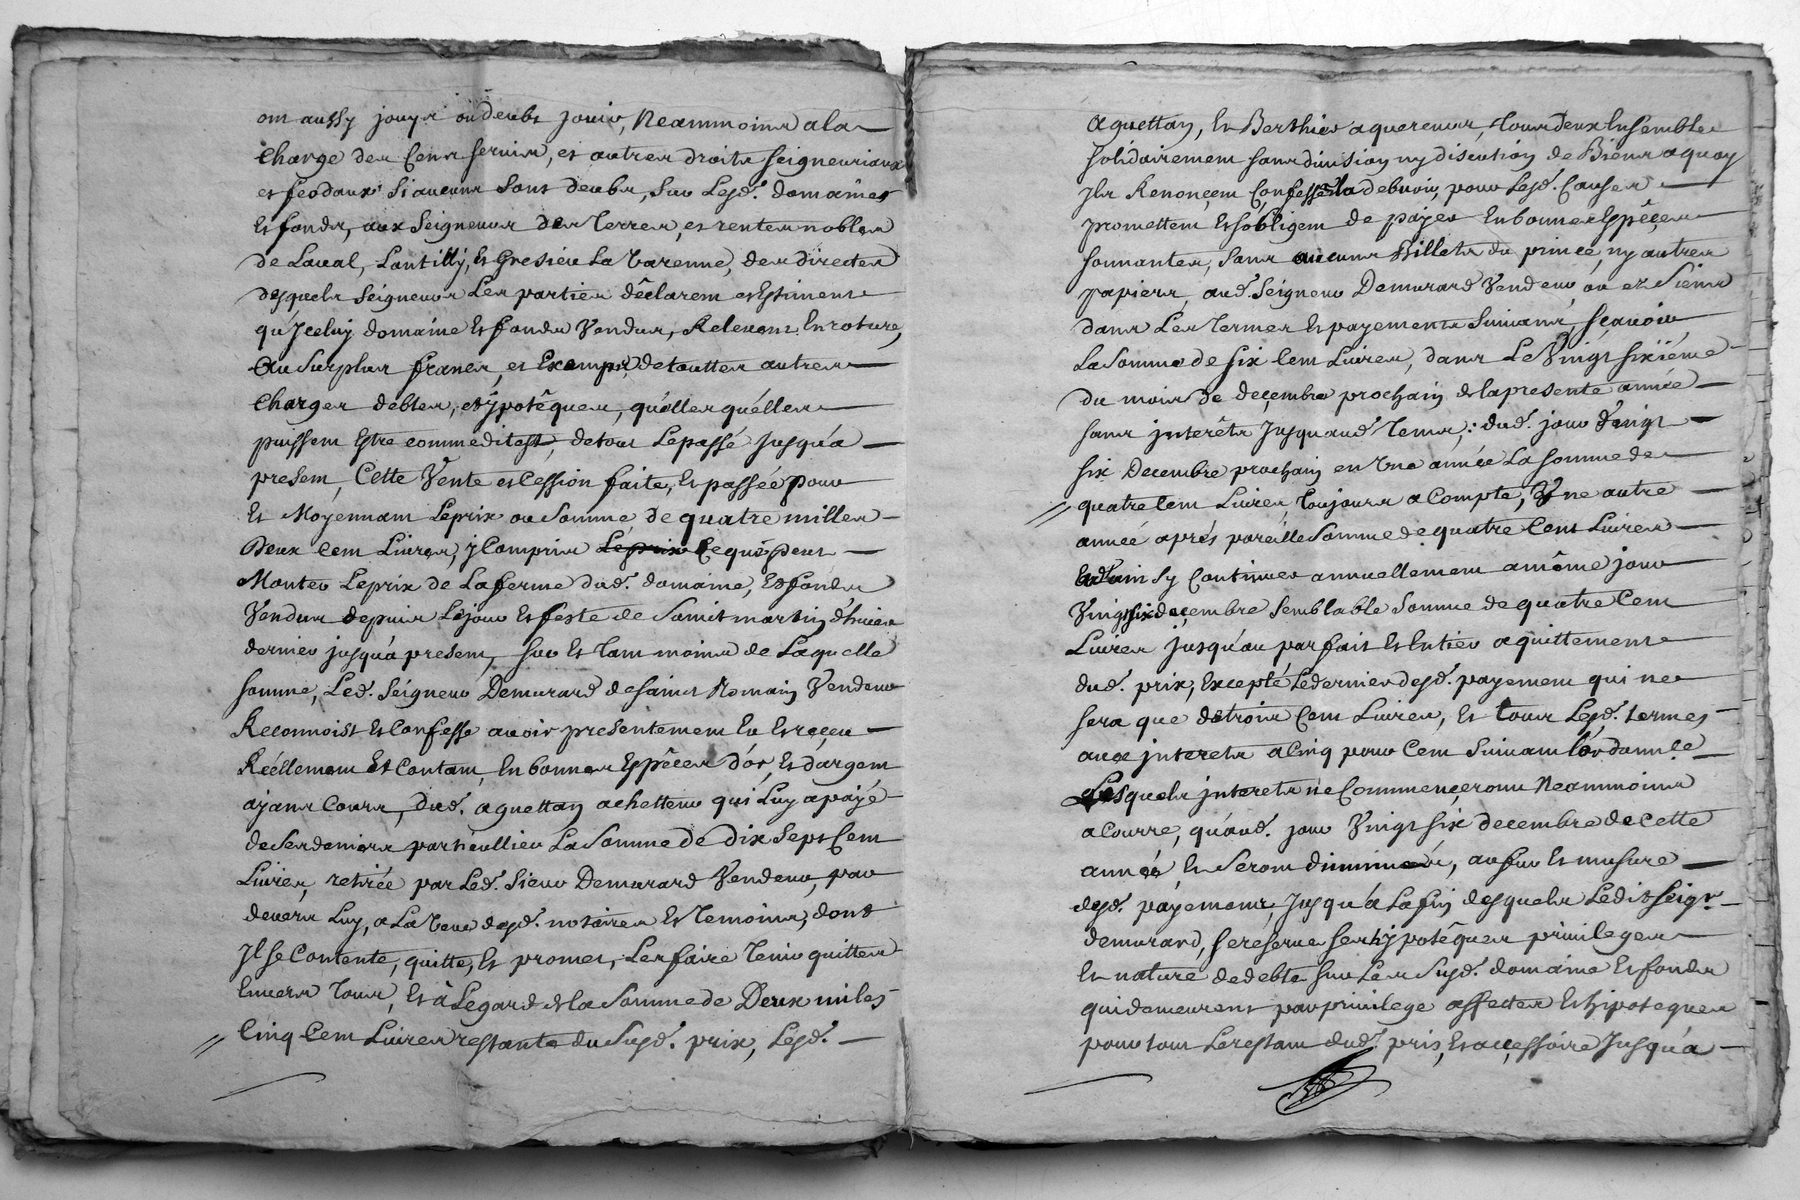 ont aussy jouyr ou deubs jouir, Neammoins a la
Charge des Cens servis, et autres droits seigneuriaux
et feodaux si aucuns sont deubs, sur Lesd. domaines
Et fonds, aux Seigneurs des Terres, et rentes nobles
de Laval, Lantilly, Et Gresieu La Varenne, des directes
desquels Seigneurs Les parties déclarent et Estiment
qu'Jceluy domaine Et fonds Vendus, Relevent En roture,
Au surplus francs, et Exempts, de touttes autres
Charges debtes, et ypotêques, quélles quélles
puissent Estre comme dit est, de tout Le passé Jusqu'a
present, Cette Vente et Cession faite, Et passée pour
Et Moyennant Le prix ou Somme de quatre milles
Deux Cent Livres, y Compris Le prix Ce qui peut
Monter Le prix de La ferme dud. domaine, Et fonds
Vendus depuis Le jour Et feste de Saint martin d'hiver
dernier jusqu'à present, sur Et Tant moins de Laquelle
somme, Led. Seigneur Demurard de saint Romain Vendeur
Reconnoist Et Confesse avoir presentement Eu Et reçeu
Réellement Et Contant, En bonnes Espêces d'or, Et d'argent
ayant Cours, dud. aguettan achetteur qui Luy a payé
de ses deniers particullier La Somme de dix Sept Cent
Livres, retirée par Led. Sieur Demurard Vendeur, par
devers Luy, a La Veue desd. notaires Et Temoins, dont
Jl se Contente, quitte, Et promet, Les faire Tenir quittes
Envers Tous, Et à L'egard de la Somme de Deux miles
Cinq Cent Livres restante du Susd. prix, Lesd.
aguettan, Et Berthier aquereurs, tous deux Ensemble
solidairement sans division ny discution de Biens a quoy
Jls Renonçent Confesse la debvoir, pour Lesd. Causes
promettent Et s'obligent de payer En bonnes Espêçes
sonnantes, sans aucuns Billets du prince, ny autres
papiers, aud. Seigneur Demurard Vendeur ou ez Siens
dans Les Termes Et payements Suivans, sçavoir
La Somme de six Cent Livres, dans Le Vingt sixiéme
du mois de deçembre prochain de la presente année
sans interêts Jusquaud. Tems, : dud. jour Vingt
six Decembre prochain en Une année La somme de
quatre Cent Livres Toujours a Compte, Une autre
année aprés pareille Somme de quatre Cent Livres
Et ainsi s'y Continuer annuellement a même jour
Vingt six deçembre semblable Somme de quatre Cent
Livres jusqu'au parfait Et Entier aquittement
dud. prix, Excepté Le dernier desd. payement qui ne
sera que de trois Cent Livres, Et tous Lesd. termes
aux interets a Cinq pour Cent Suivant L'ordonn.ce
Lesquels interets ne Commençeront Neammoins
a Courre, qu'aud. jour Vingt six decembre de Cette
année, Et Seront diminués, au fur Et mesure
desd. payement, Jusqu'à La fin desquels Ledit Seigr
demurard, se reserve ses hypotêques privileges
Et nature de debte sur Les Susd. domaine Et fonds
qui demeurent par privilege affectes Et hipoteques
pour tout Le restant dud. pris, Et acçessoire Jusqu'à